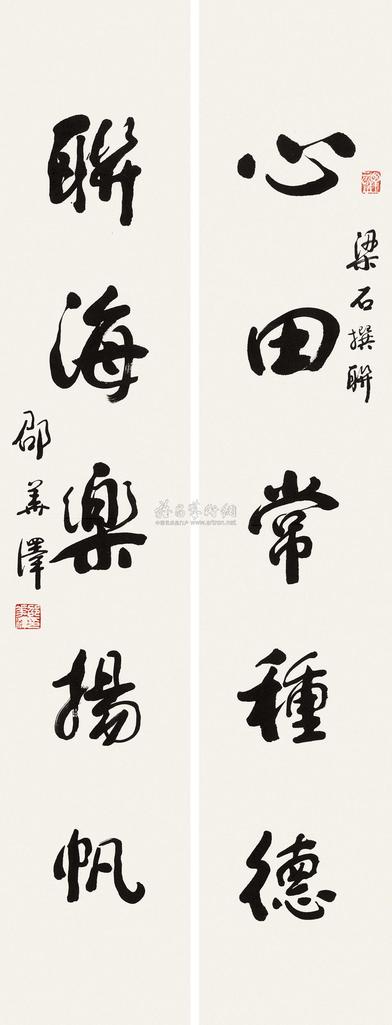 梁石撰聯
心田常種德
聯海樂揚帆
邵華澤
www.artron.net